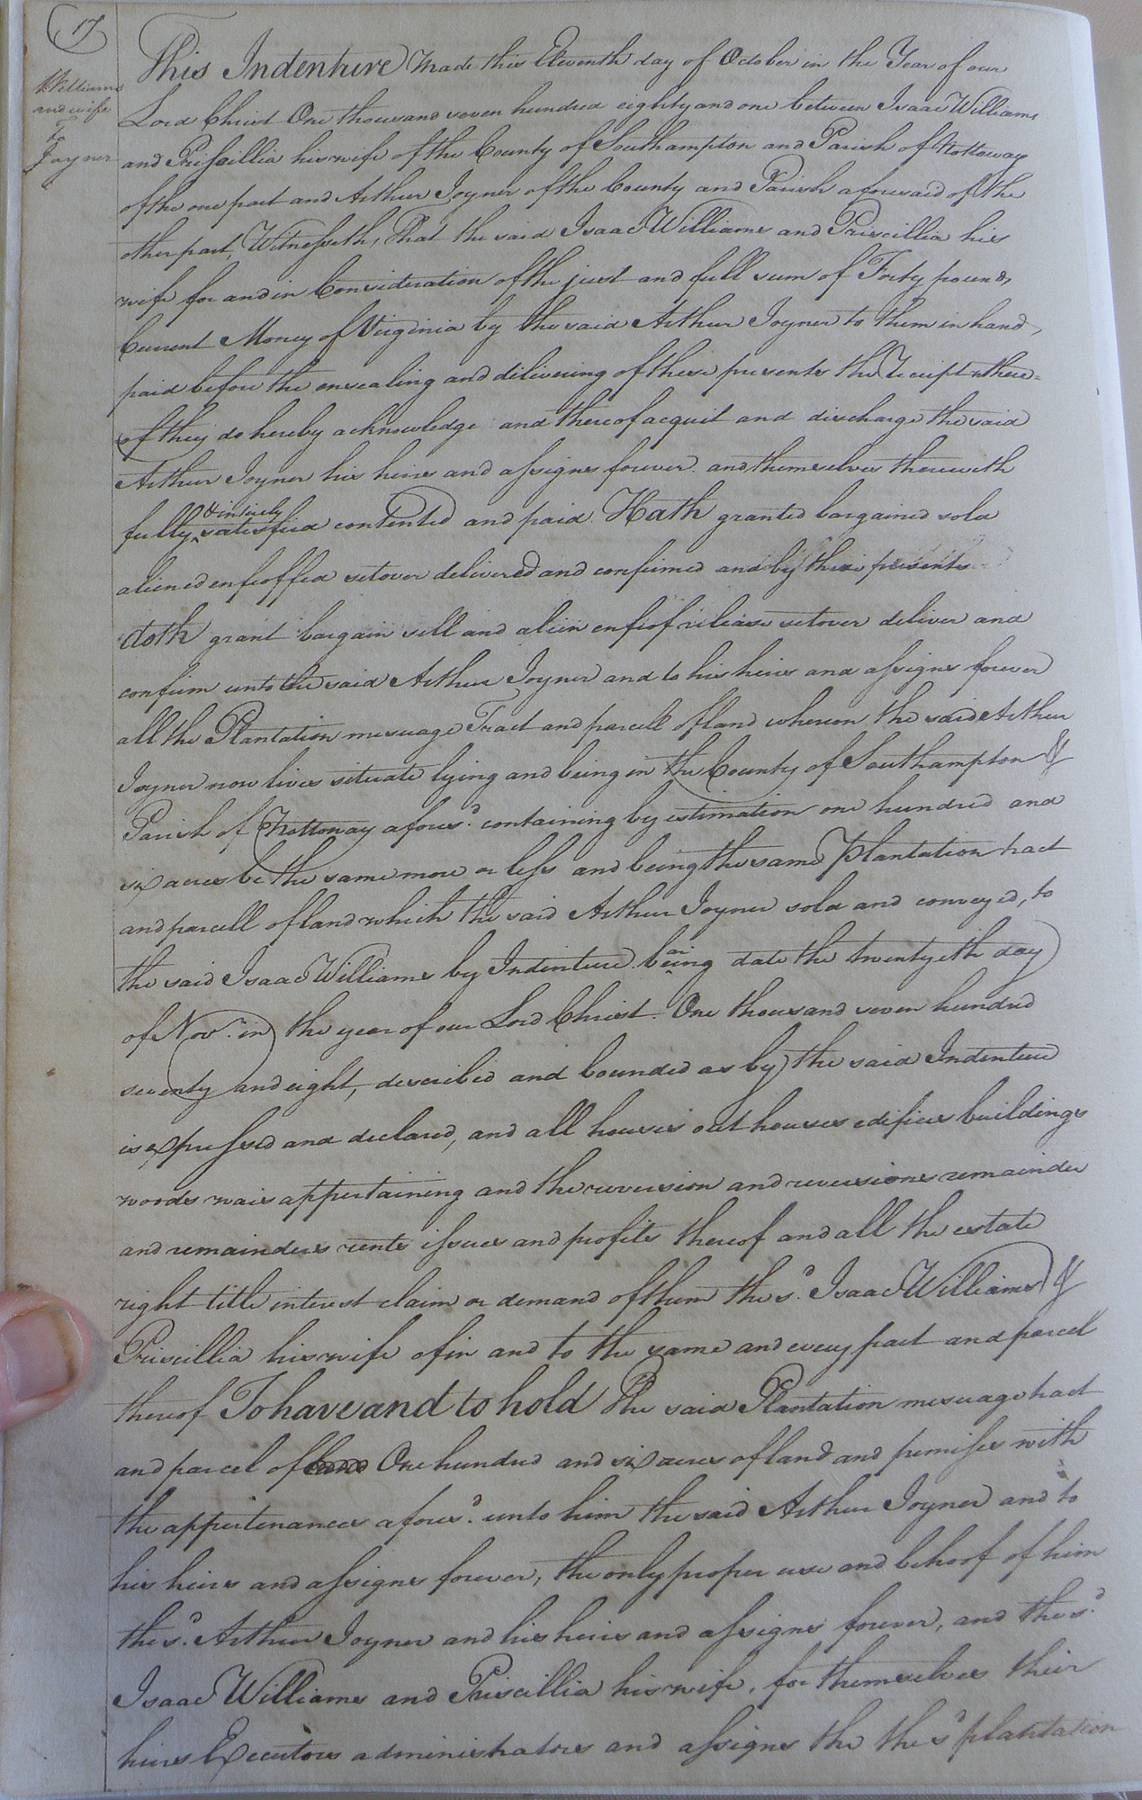 17
Williams
and wife
to
Joyner
This Indenture Made this Eleventh day of October in the Year of our
Lord Christ One thousand seven hundred eighty and one between Isaac Williams
and Prissillia his wife of the County of Southampton and Parish of Nottoway
of the one part and Arthur Joyner of the County and Parish aforesaid of the
other part, Witnesseth, That the said Isaac Williams and Priscillia his
wife for and in Consideration of the just and full sum of Forty pounds
Current Money of Virginia by the said Arthur Joyner to them in hand,
paid before the ensealing and delivering of these presents the Receipt where=
of they do hereby acknowledge and thereof acquit and discharge the said
Arthur Joyner his heirs and assigns forever and themselves therewith
fully & intirely satisfied contented and paid. Hath granted bargained sold
aliened enfeoffed setover delivered and confirmed and by these presents
doth grant bargain sell and alien enfeof release setover deliver and
confirm unto the said Arthur Joyner and to his heirs and assigns forever
all the Plantation mesuage Tract and parcell of land whereon the said Arthur
Joyner now lives situate lying and being in the County of Southampton &
Parish of Nottoway afores.d containing by estimation one hundred and
six acres be the same more or less and being the same Plantation tract
and parcell of land which the said Arthur Joyner sold and conveyed, to
the said Isaac Williams by Indenture bearing date the twentyeth day
of Nov.r in the year of our Lord Christ. One thousand seven hundred
seventy and eight, described and bounded as by the said Indenture
is expressed and declared, and all houses out houses edifices buildings
woods wais appertaining and the reversion and reversions remainder
and remainders rents issues and profits thereof and all the estate
right title interest claim or demand of them the s.d Isaac Williams &
Priscillia his wife of in and to the same and every part and parcel
thereof To have and to hold The said Plantation mesuage tract
and parcel of One hundred and six acres of land and premises with
the appertenances afores.d unto him the said Arthur Joyner and to
his heirs and assigns forever, the only proper use and behoof of him
the s.d Arthur Joyner and his heirs and assigns forever, and the s.d
Isaac Williams and Priscillia his wife, for themselves their
heirs Executors administrators and assigns the the s.d plantation